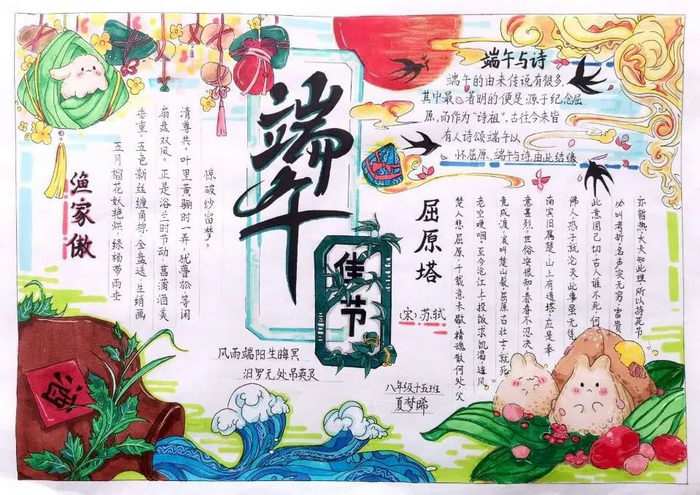 端午与诗
端午的由来传说有很多,
其中最着明的便是源于纪念屈
原,而作为“诗祖”,古往今来皆
有人诗颂端午以
怀屈原,端午与诗,由此结缘
端午
佳节
渔家傲
五月榴花妖艳烘,绿杨带雨垂
垂重。五色新丝缠角粽,金盘送,生绡画
扇盘双凤。正是浴兰时节动,菖蒲酒美
清尊共。叶里黄鹂时一弄,犹瞢忪,等闲
惊破纱窗梦。
屈原塔
(宋)苏轼
楚人悲屈原,千载意未歇。精魂散何处,父
老空哽咽。至今沧江上,投饭求饥渴。遗风
竟成渡,哀叫楚山裂。屈原古壮士,就死
意甚烈。世俗安得知,眷眷不忍决。
南宾旧属楚,山上有遗塔。应是奉
佛人,恐子就沦灭。此事虽无凭,
此意固已切。古人谁不死,何
考折。名声实无穷,富贵
亦暂热。大夫知此理,所以持死节
风雨端阳生晦冥
汨罗无处吊英灵
八年级十五班
夏梦晞
酒